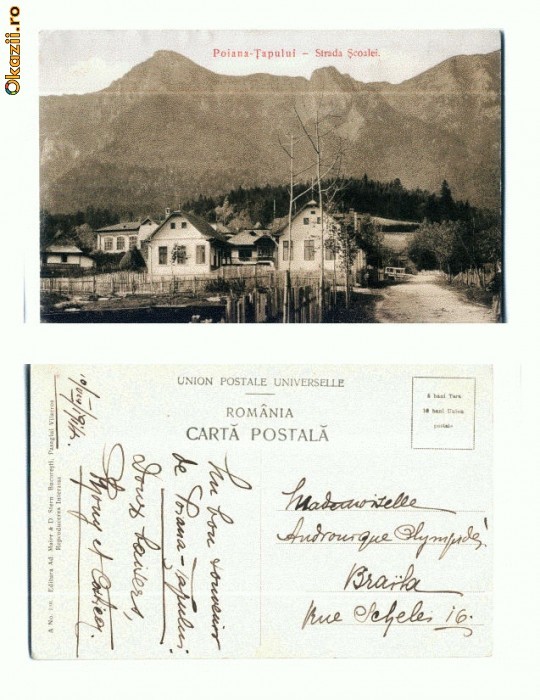 Okazii.ro
Poiana-Țapului – Strada Școalei.
UNION POSTALE UNIVERSELLE
ROMÂNIA
CARTĂ POSTALĂ
5 bani Țara
10 bani Uniua
postale
A No. Editura Ad. Maier & D. Stern, București, Pasagiul Vilacros
Reproducerea Interzisa
Un bon souvenir
de Poiana-Țapului
Doux baisers,
et
Mademoiselle
Olympide
Braïla
Rue Scheles 16.